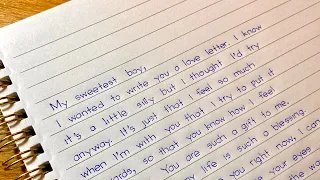 My sweetest boy,
I wanted to write you a love letter. I know
it's a little silly but I thought I'd try
anyway. It's just that I feel so much
when I'm with you that I try to put it
words, so that you know how I feel
You are such a gift to me.
my life is such a blessing.
you right now, I can
your eyes
the wa